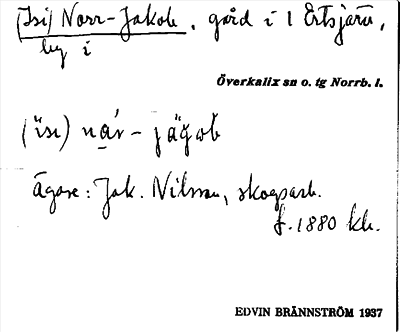 (Isi) Norr-Jakob, gård i 1 Ertsjärv,
by i
Överkalix sn o. tg Norrb. l.
(isi) nár - jägob
Ägare: Jak. Nilsson, skogsarb.
f. 1880 kb.
EDVIN BRÄNNSTRÖM 1937